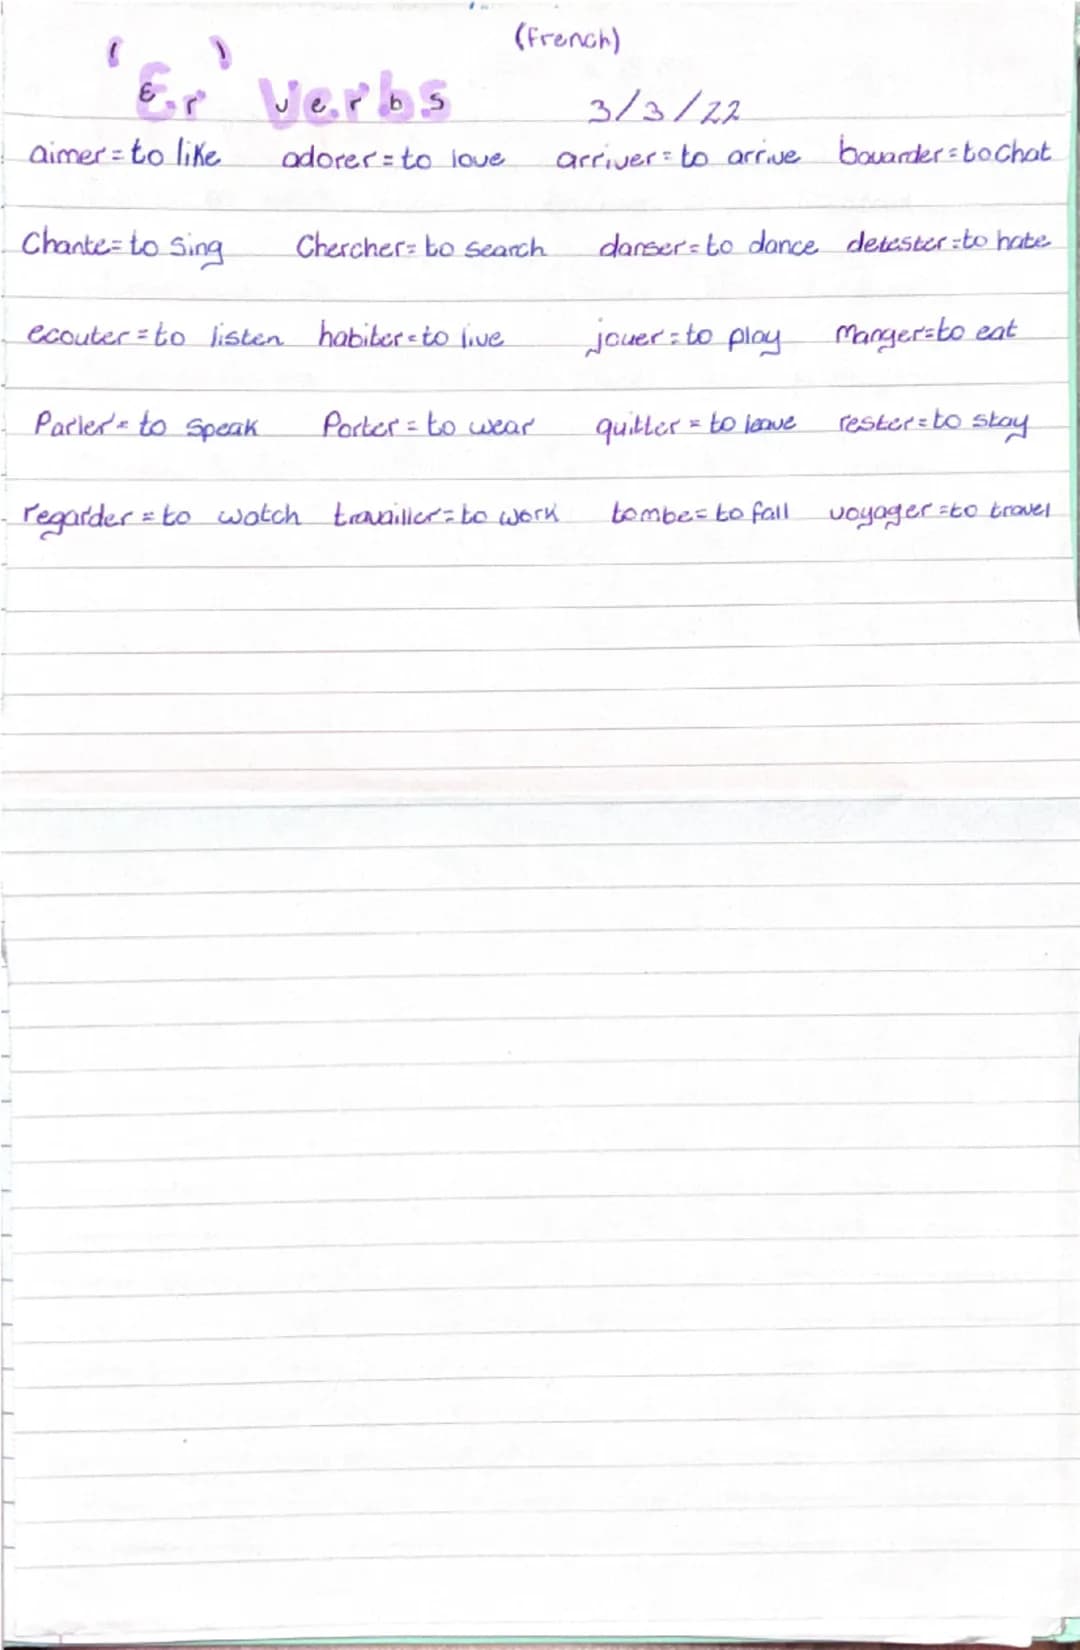 (French)
'Er' Verbs 3/3/22
aimer = to like adorer = to love arriver = to arrive bavarder = to chat
Chante = to Sing Chercher = to search danser = to dance detester = to hate
ecouter = to listen habiter = to live jouer = to play Manger = to eat
Parler = to speak Porter = to wear quitter = to leave rester = to stay
regarder = to watch travailler = to work tombe = to fall voyager = to travel